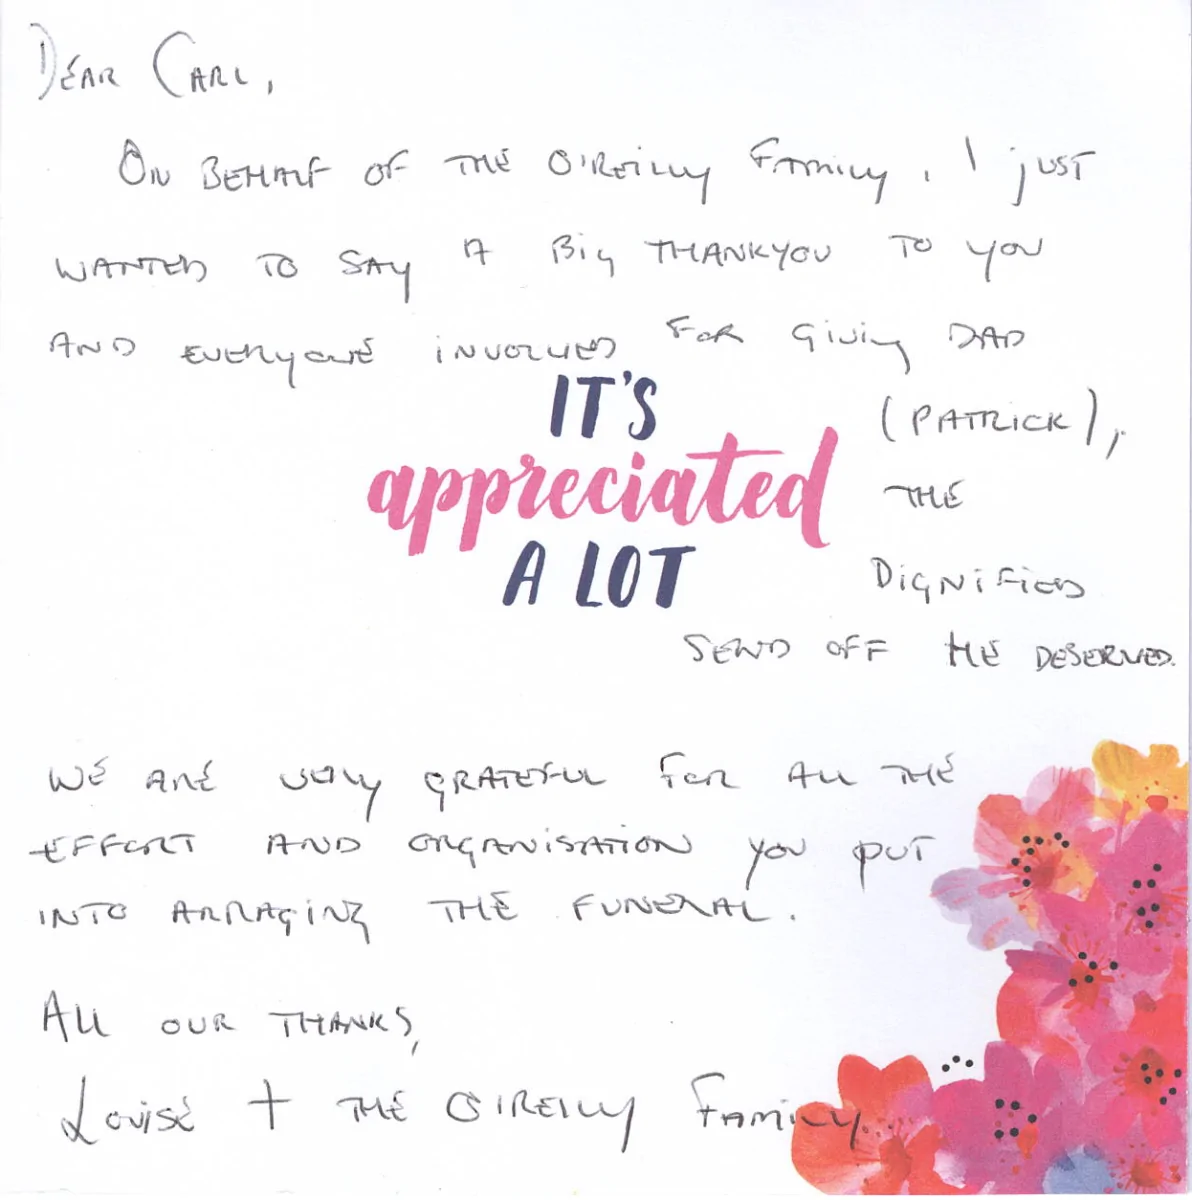 Dear Carl,
On behalf of the O'Reilly Family, I just
wanted to say a big thankyou to you
and everyone involved for giving Dad
(Patrick),
the
dignified
send off he deserved.
IT'S
appreciated
A LOT
We are very grateful for all the
effort and organisation you put
into arraging the funeral.
All our thanks,
Louise + the O'Reilly Family